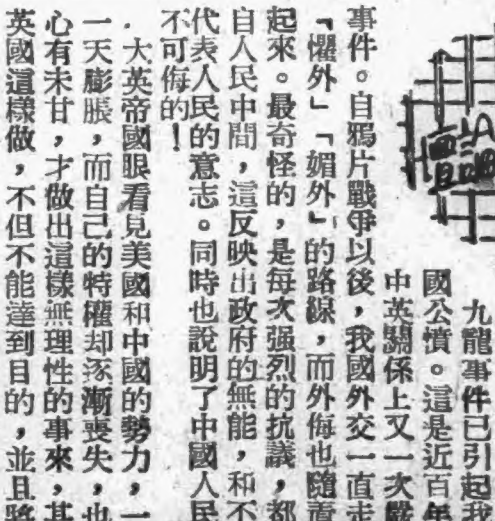 論壇
九龍事件已引起我
國公憤。這是近百年
中英關係上又一次嚴
事件。自鴉片戰爭以後，我國外交一直走
「懼外」「媚外」的路線，而外侮也隨着
起來。最奇怪的，是每次强烈的抗議，都
自人民中間，這反映出政府的無能，和不
代表人民的意志。同時也說明了中國人民
不可侮的！
大英帝國眼看見美國和中國的勢力，一
一天膨脹，而自己的特權却逐漸喪失，也
心有未甘，才做出這樣無理性的事來，其
英國這樣做，不但不能達到目的，並且將